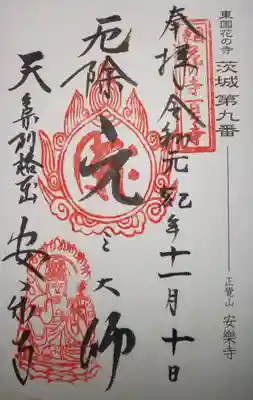 東国花の寺 茨城 第九番
正覚山 安樂寺
奉拝 令和元 己亥年 十一月 十日
厄除 元三大師
天台宗別格本山
安楽寺